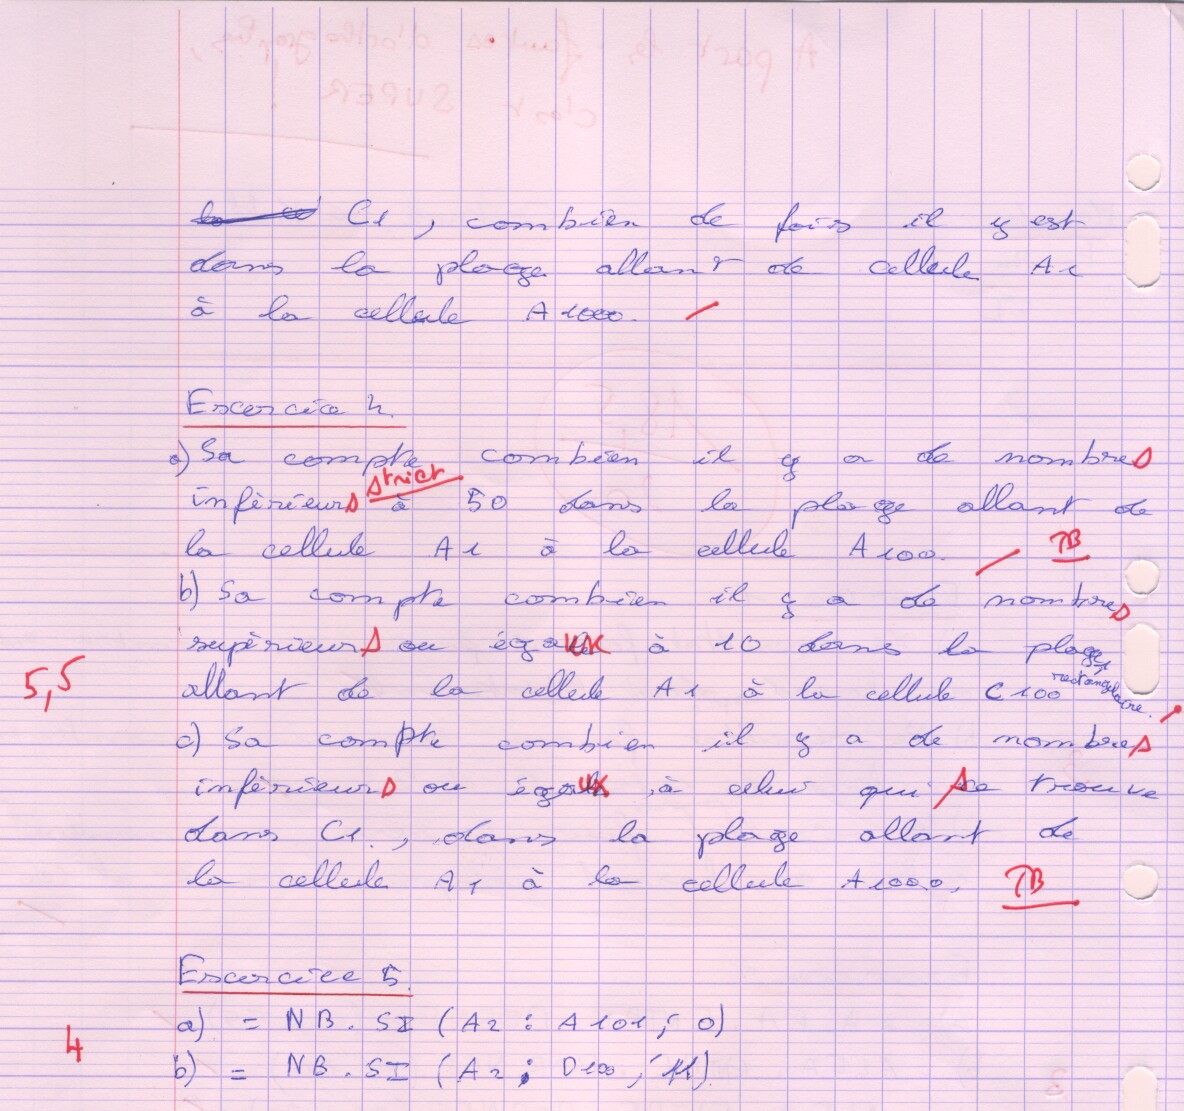 C1, combien de fois il y est
dans la plage allant de cellule A1
à la cellule A1000.
Exercice 4.
a) Sa compte combien il y a de nombres
strict
inférieurs à 50 dans la plage allant de
la cellule A1 à la cellule A100. TB
b) Sa compte combien il y a de nombres
supérieurs ou égaux à 10 dans la plage
rectangulaire.
5,5
allant de la cellule A1 à la cellule C100
c) Sa compte combien il y a de nombres
inférieurs ou égaux à celui qui se trouve
dans C1, dans la plage allant de
la cellule A1 à la cellule A1000. TB
Exercice 5.
a) = NB.SI (A2 : A101 ; 0)
4
b) = NB.SI (A2 ; D100 ; 11)